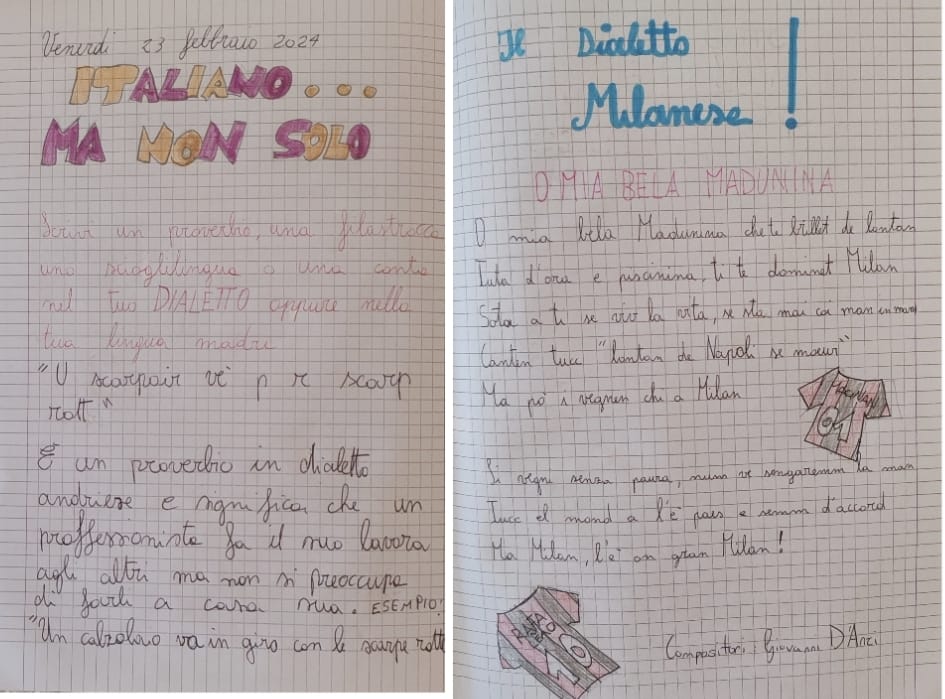 Venerdì 23 febbraio 2024
ITALIANO...
MA NON SOLO
Scrivi un proverbio, una filastrocca
uno scioglilingua o una conta
nel tuo DIALETTO oppure nella
tua lingua madre
"U scarpair vè p r scarp
rott"
È un proverbio in dialetto
andriese e significa che un
proffessionista fa il suo lavoro
agli altri ma non si preoccupa
di farli a casa sua. ESEMPIO:
"Un calzolaio va in giro con le scarpe rotte
Il Dialetto
Milanese!
O MIA BELA MADUNINA
O mia bela Madunina che te brillet de lontan
Tuta d'ora e piscinina, ti te dominet Milan
Sota a ti se viv la vita, se sta mai coi man in man
Canten tucc "lontan de Napoli se moeur"
Ma po' i vegnen chi a Milan
01
Si vegni senza paura, num ve songaremm la man
Tucc el mond a l'è paes e semm d'accord
Ma Milan, l'è on gran Milan!
Compositori: Giovanni D'Anzi